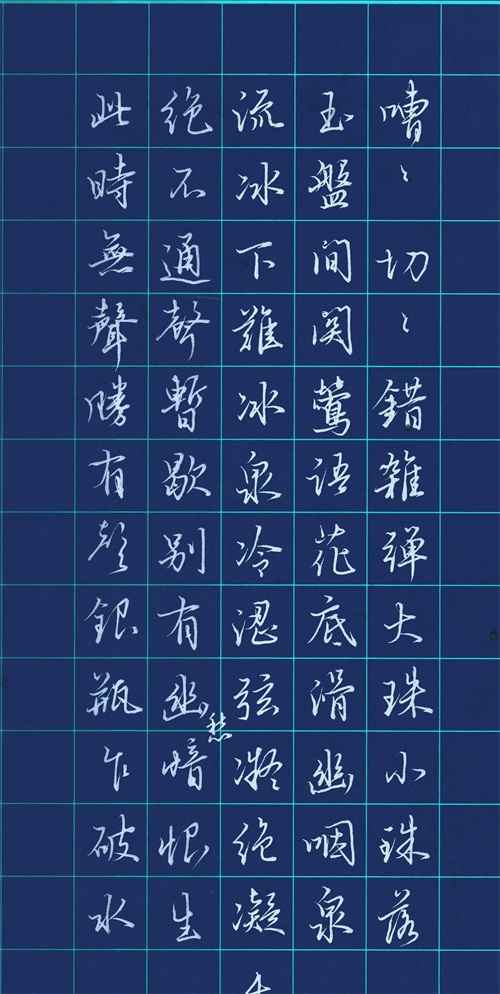 嘈〻切〻錯雜弹大珠小珠落
玉盤间関鶯語花底滑幽咽泉
流冰下難冰泉冷涩弦凝绝凝
绝不通聲暫歇别有幽愁愔恨生
此時無聲勝有聲銀瓶乍破水